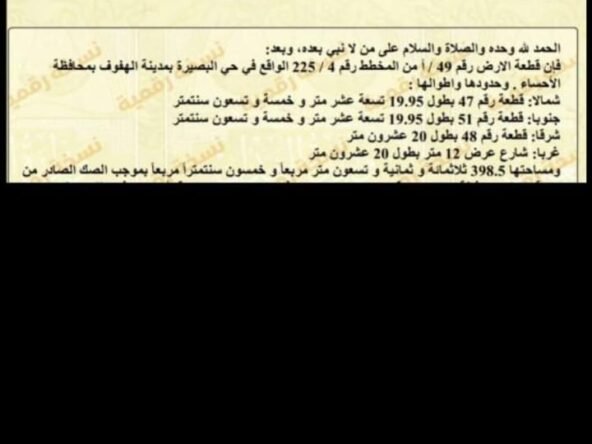 الحمد لله وحده والصلاة والسلام على من لا نبي بعده، وبعد:
فإن قطعة الارض رقم 49 / أ من المخطط رقم 4 / 225 الواقع في حي البصيرة بمدينة الهفوف بمحافظة
الأحساء . وحدودها واطوالها :
شمالا: قطعة رقم 47 بطول 19.95 تسعة عشر متر و خمسة و تسعون سنتمتر
جنوبا: قطعة رقم 51 بطول 19.95 تسعة عشر متر و خمسة و تسعون سنتمتر
شرقا: قطعة رقم 48 بطول 20 عشرون متر
غربا: شارع عرض 12 متر بطول 20 عشرون متر
ومساحتها 398.5 ثلاثمائة و ثمانية و تسعون متر مربعاً و خمسون سنتمتراً مربعاً بموجب الصك الصادر من
نسخة رقمية
نسخة رقمية
نسخة رقمية